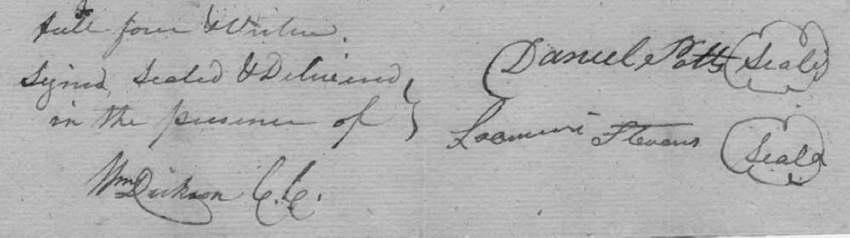 full force & Virtue.
Signd, Sealed & Deliverd
in the presence of
Wm Dickson C.C.
Daniel Potts (Seal)
Stevens (Seal)